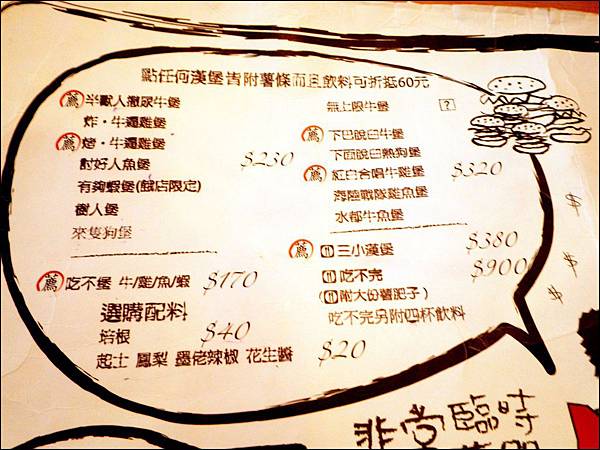 點任何漢堡皆附薯條而且飲料可折抵60元
薦 半獸人撒尿牛堡
炸・牛蠅雞堡
薦 焙・牛蠅雞堡
討好人魚堡
$230
有夠蝦堡(餓店限定)
樹人堡
來隻狗堡
無上限牛堡 ?
薦 下巴脫臼牛堡
下面脫臼熱狗堡
薦 紅白合唱牛雞堡 $320
海陸戰隊雞魚堡
水都牛魚堡
薦 三小漢堡 $380
吃不完 $900
(附大份薯肥子)
吃不完另附四杯飲料
薦 吃不堡 牛/雞/魚/蝦 $170
選購配料
培根 $40
起士 鳳梨 墨佬辣椒 花生醬 $20
非常臨時